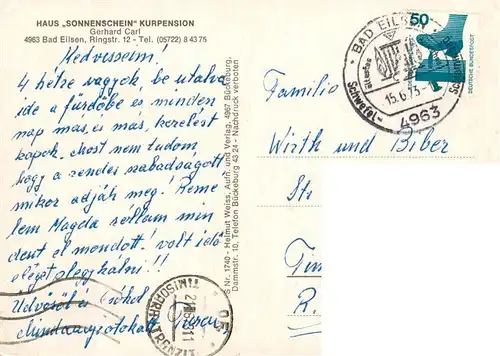 HAUS „SONNENSCHEIN" KURPENSION
Gerhard Carl
4963 Bad Eilsen, Ringstr. 12 - Tel. (05722) 8 43 75
Kedveseim!
4 hétre vagyok be utalva
ide a fürdőbe és minden
nap más, és más, kezelest
kapok. Most nem tudom,
hogy a rendes szabadságott
mikor adják meg! Reme
lem Magda rollam min
dent el mondott! volt idő
eleget
Üdvözöl és csókol
Mindannyiotokat
Nr. 1740 - Helmut Weiss, Aufn. und Verlag, 4967 Bückeburg,
Dammstr. 10, Telefon Bückeburg 43 24 - Nachdruck verboten
BAD EILSEN
Schwefel-
15.6.73
4963
50
DEUTSCHE BUNDESPOST
Familie
Wirth und Biber
St
Tim
R.
TIMISOARA
TRANZIT